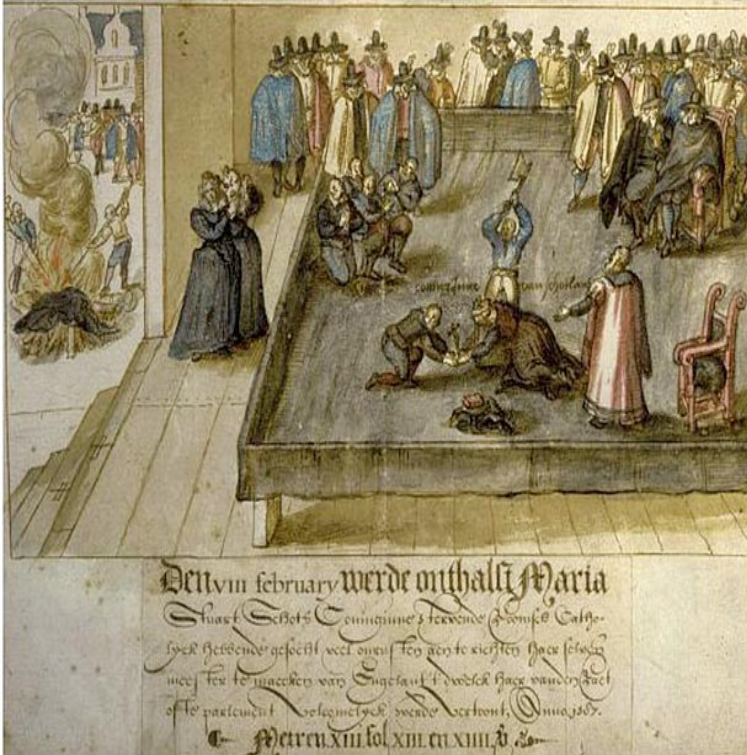 Coninginne van Schotlant
Den viii february werde onthalst Maria
Stuart Schots Coninginne stervende Roomsch Catho-
lyck hebbende gesocht veel onrusten aen te richten haer selven
meester te maecken van Engelant t dwelck haer vanden Raet
ofte parlement volcomelyck werde vertoont, Anno 1587.
Meteren xiii fol xiii en xiiii